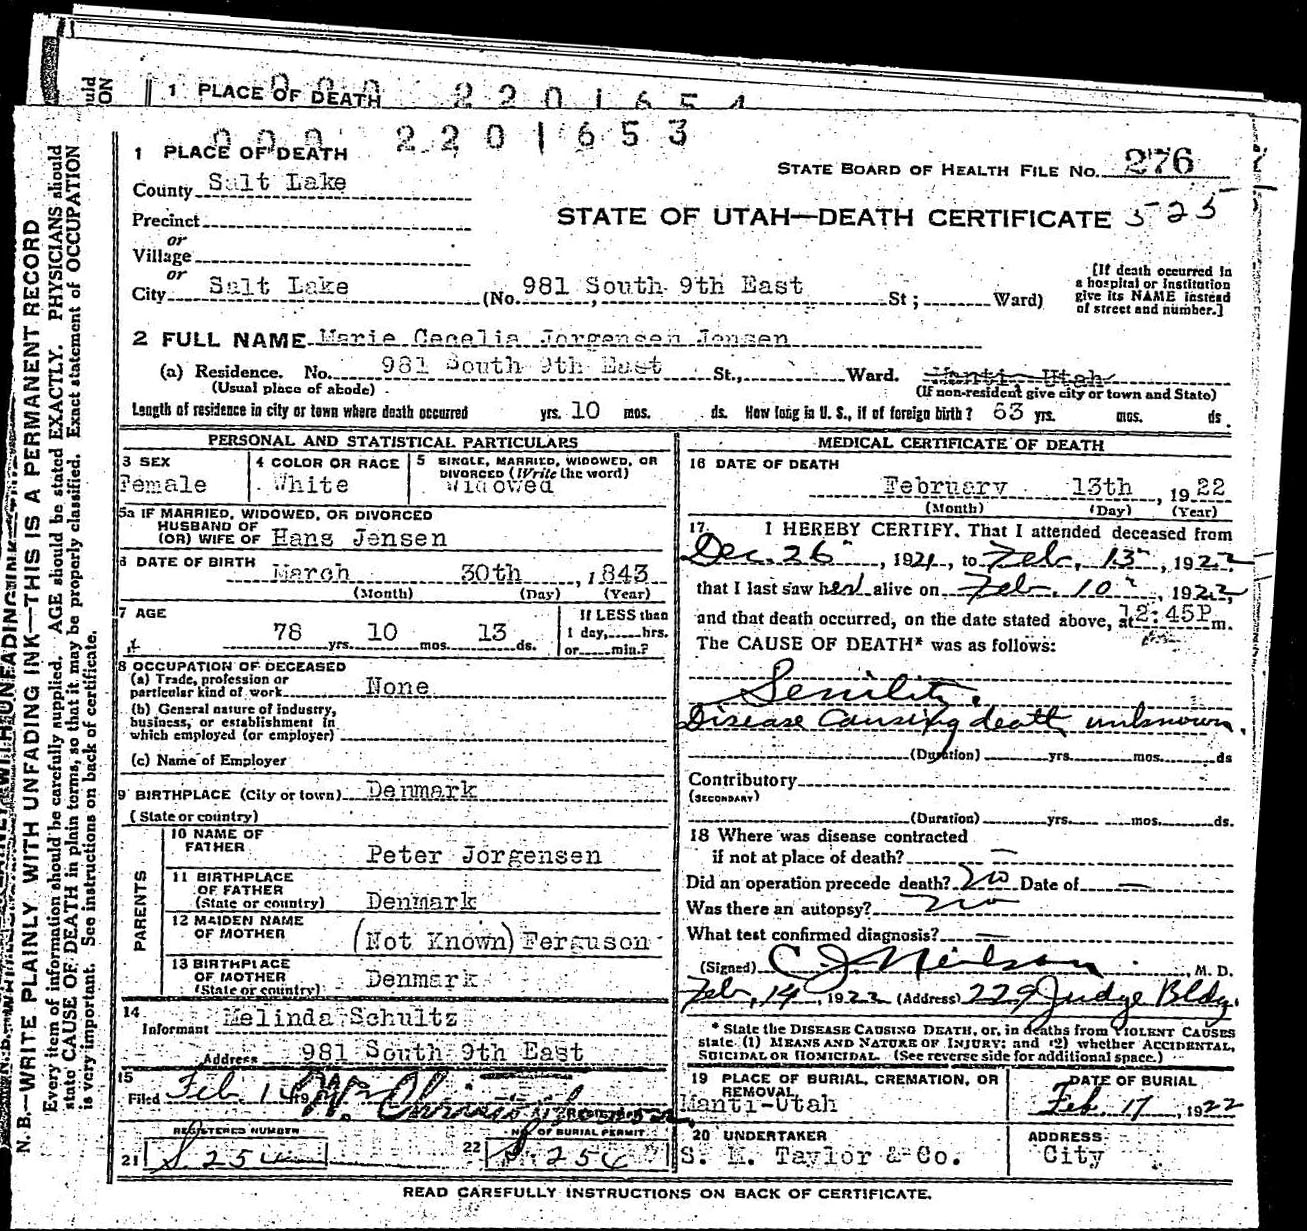 1 PLACE OF DEATH 000 2201654
000 2201653
1 PLACE OF DEATH
STATE BOARD OF HEALTH FILE NO. 276
County Salt Lake
STATE OF UTAH—DEATH CERTIFICATE 525
Precinct
or
Village
or
City Salt Lake (No. 981 South 9th East St; Ward)
[If death occurred in
a hospital or institution
give its NAME instead
of street and number.]
2 FULL NAME Marie Cecelia Jorgensen Jensen
(a) Residence. No. 981 South 9th East St., Ward. Manti-Utah
(Usual place of abode) (If non-resident give city or town and State)
Length of residence in city or town where death occurred yrs. 10 mos. ds. How long in U. S., if of foreign birth? 63 yrs. mos. ds.
PERSONAL AND STATISTICAL PARTICULARS
3 SEX
Female
4 COLOR OR RACE
White
5 SINGLE, MARRIED, WIDOWED, OR
DIVORCED (Write the word)
Widowed
5a IF MARRIED, WIDOWED, OR DIVORCED
HUSBAND OF
(OR) WIFE OF Hans Jensen
6 DATE OF BIRTH March 30th, 1843
(Month) (Day) (Year)
7 AGE
78 yrs. 10 mos. 13 ds.
If LESS than
1 day, hrs.
or min.?
8 OCCUPATION OF DECEASED
(a) Trade, profession or
particular kind of work None
(b) General nature of industry,
business, or establishment in
which employed (or employer)
(c) Name of Employer
9 BIRTHPLACE (City or town) Denmark
(State or country)
PARENTS
10 NAME OF
FATHER Peter Jorgensen
11 BIRTHPLACE
OF FATHER
(State or country) Denmark
12 MAIDEN NAME
OF MOTHER (Not Known) Ferguson
13 BIRTHPLACE
OF MOTHER
(State or country) Denmark
14
Informant Melinda Schultz
Address 981 South 9th East
15
Filed Feb. 14
REGISTERED NUMBER
21 S. 254
NO. OF BURIAL PERMIT
22 S. 254
MEDICAL CERTIFICATE OF DEATH
16 DATE OF DEATH
February 13th, 1922
(Month) (Day) (Year)
17. I HEREBY CERTIFY, That I attended deceased from
Dec. 26, 1921, to Feb. 13, 1922
that I last saw her alive on Feb. 10, 1922,
and that death occurred, on the date stated above, at 12:45P m.
The CAUSE OF DEATH* was as follows:
Senility.
Disease Causing death unknown.
(Duration) yrs. mos. ds
Contributory
(SECONDARY)
(Duration) yrs. mos. ds.
18 Where was disease contracted
if not at place of death? —
Did an operation precede death? No Date of —
Was there an autopsy? No
What test confirmed diagnosis? —
(Signed) C J Neilson, M. D.
Feb, 14, 1922 (Address) 229 Judge Bldg.
* State the DISEASE CAUSING DEATH, or, in deaths from VIOLENT CAUSES
state (1) MEANS AND NATURE OF INJURY; and (2) whether ACCIDENTAL,
SUICIDAL OR HOMICIDAL. (See reverse side for additional space.)
19 PLACE OF BURIAL, CREMATION, OR
REMOVAL
Manti-Utah
DATE OF BURIAL
Feb. 17, 1922
20 UNDERTAKER
S. M. Taylor & Co.
ADDRESS
City
READ CAREFULLY INSTRUCTIONS ON BACK OF CERTIFICATE.
N. B.—WRITE PLAINLY WITH UNFADING INK—THIS IS A PERMANENT RECORD
Every item of information should be carefully supplied. AGE should be stated EXACTLY. PHYSICIANS should
state CAUSE OF DEATH in plain terms, so that it may be properly classified. Exact statement of OCCUPATION
is very important. See instructions on back of certificate.